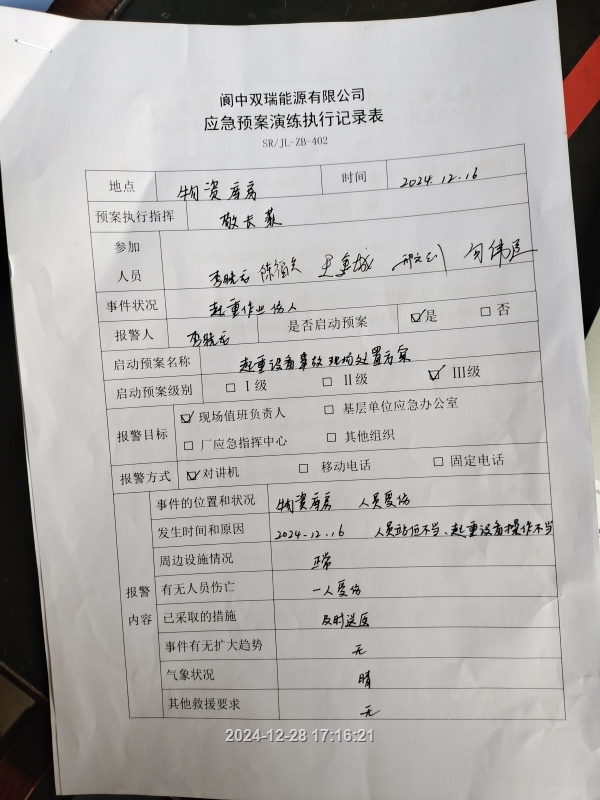 阆中双瑞能源有限公司
应急预案演练执行记录表
SR/JL-ZB-402
地点 物资库房 时间 2024.12.16
预案执行指挥
参加人员 李晓云
事件状况 起重作业伤人
报警人 李晓云 是否启动预案 ☑是 □否
启动预案名称 起重设备事故现场处置方案
启动预案级别 □Ⅰ级 □Ⅱ级 ☑Ⅲ级
报警目标 ☑现场值班负责人 □基层单位应急办公室
□厂应急指挥中心 □其他组织
报警方式 ☑对讲机 □移动电话 □固定电话
报警内容
事件的位置和状况 物资库房 人员受伤
发生时间和原因 2024.12.16 人员站位不当、起重设备操作不当
周边设施情况 正常
有无人员伤亡 一人受伤
已采取的措施 及时送医
事件有无扩大趋势 无
气象状况 晴
其他救援要求 无
2024-12-28 17:16:21